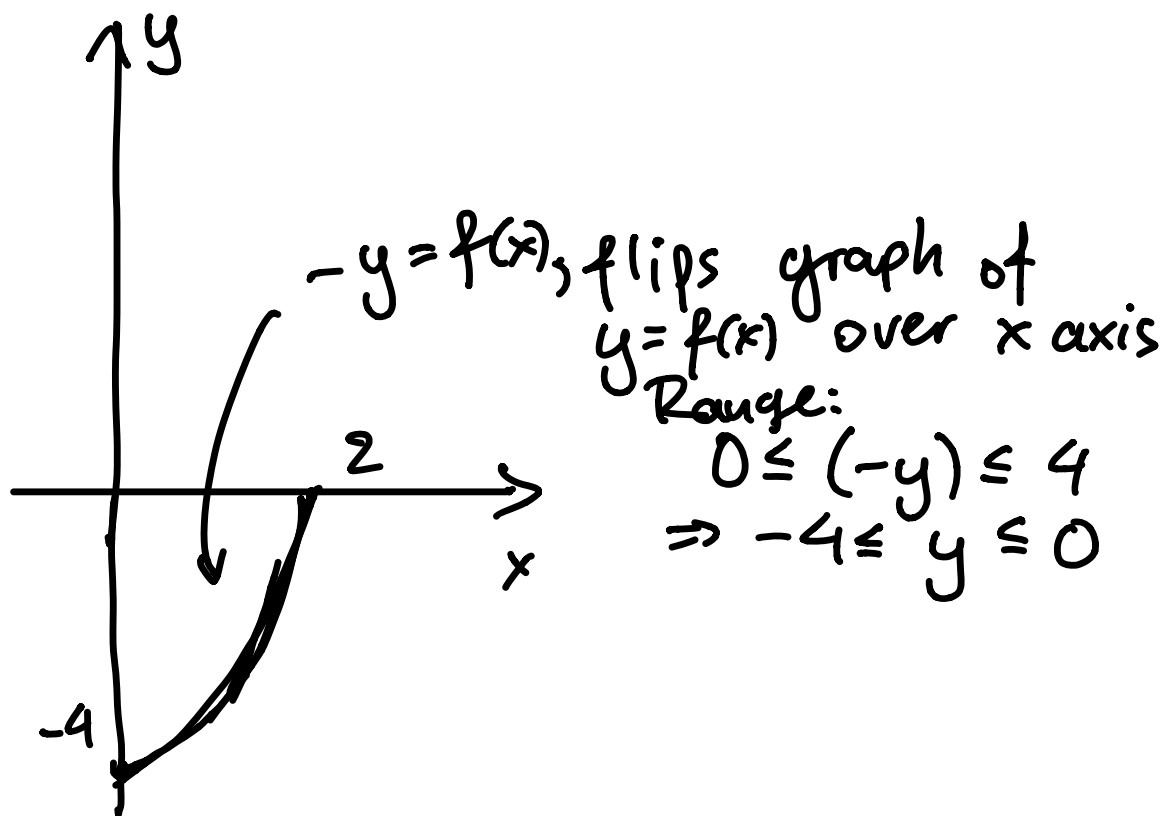 y
-y = f(x), flips graph of
y = f(x) over x axis
Range:
2
0 ≤ (-y) ≤ 4
⇒ -4 ≤ y ≤ 0
x
-4